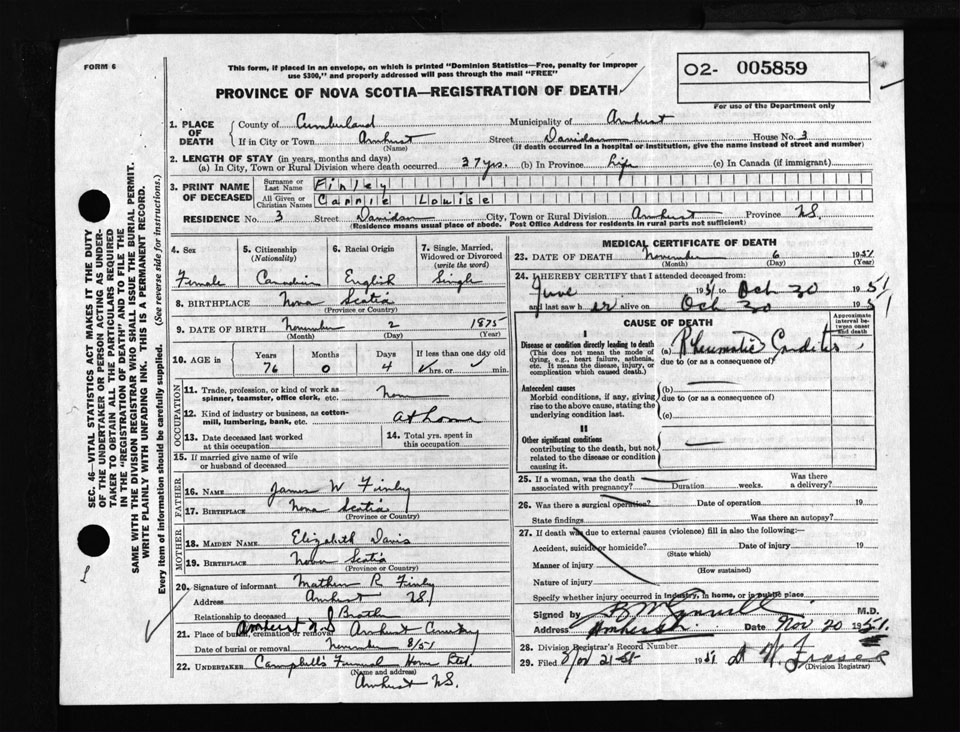 FORM 6
This form, if placed in an envelope, on which is printed "Dominion Statistics—Free, penalty for improper
use $300," and properly addressed will pass through the mail "FREE"
PROVINCE OF NOVA SCOTIA—REGISTRATION OF DEATH
02- 005859
For use of the Department only
1. PLACE OF DEATH
County of Cumberland Municipality of Amherst
If in City or Town Amherst Street House No. 3
(Name) (If death occurred in a hospital or institution, give the name instead of street and number)
2. LENGTH OF STAY (in years, months and days)
(a) In City, Town or Rural Division where death occurred 37 yrs. (b) In Province Life (c) In Canada (if immigrant)
3. PRINT NAME OF DECEASED
Surname or Last Name Finley
All Given or Christian Names Carrie Louise
RESIDENCE No. 3 Street City, Town or Rural Division Amherst Province NS.
(Residence means usual place of abode. Post Office Address for residents in rural parts not sufficient)
4. Sex Female
5. Citizenship (Nationality) Canadian
6. Racial Origin English
7. Single, Married, Widowed or Divorced (write the word) Single
8. BIRTHPLACE Nova Scotia
(Province or Country)
9. DATE OF BIRTH November 2 1875
(Month) (Day) (Year)
10. AGE in Years Months Days If less than one day old
76 0 4 hrs. or min.
OCCUPATION
11. Trade, profession, or kind of work as
spinner, teamster, office clerk, etc.
12. Kind of industry or business, as cotton-
mill, lumbering, bank, etc. at home
13. Date deceased last worked
at this occupation
14. Total yrs. spent in
this occupation
15. If married give name of wife
or husband of deceased
FATHER
16. NAME James W Finley
17. BIRTHPLACE Nova Scotia
(Province or Country)
MOTHER
18. MAIDEN NAME Elizabeth Davis
19. BIRTHPLACE Nova Scotia
(Province or Country)
20. Signature of informant R Finley
Address Amherst NS
Relationship to deceased Brother
21. Place of burial, cremation or removal Amherst N.S Amherst Cemetery
Date of burial or removal November 8/51
22. UNDERTAKER Campbell's Funeral Home Ltd.
(Name and address)
Amherst NS.
MEDICAL CERTIFICATE OF DEATH
23. DATE OF DEATH November 6 1951
(Month) (Day) (Year)
24. I HEREBY CERTIFY that I attended deceased from
June 1951 to Oct 30 1951
and last saw her alive on Oct 30 1951
CAUSE OF DEATH
Approximate interval between onset and death
I
Disease or condition directly leading to death
(This does not mean the mode of
dying, e.g., heart failure, asthenia,
etc. It means the disease, injury, or
complication which caused death.)
(a) Rheumatic Carditis
due to (or as a consequence of)
Antecedent causes
Morbid conditions, if any, giving
rise to the above cause, stating the
underlying condition last.
(b)
due to (or as a consequence of)
(c)
II
Other significant conditions
contributing to the death, but not
related to the disease or condition
causing it.
25. If a woman, was the death
associated with pregnancy? Duration weeks. Was there
a delivery?
26. Was there a surgical operation? Date of operation 19
State findings Was there an autopsy?
27. If death was due to external causes (violence) fill in also the following:—
Accident, suicide or homicide? Date of injury 19
(State which)
Manner of injury
(How sustained)
Nature of injury
Specify whether injury occurred in industry, in home, or in public place
Signed by M.D.
Address Amherst. Date Nov 20 1951.
28. Division Registrar's Record Number
29. Filed Nov 21st 1951 Fraser
(Division Registrar)
SEC. 46—VITAL STATISTICS ACT MAKES IT THE DUTY
OF THE UNDERTAKER OR PERSON ACTING AS UNDER-
TAKER TO OBTAIN ALL THE PARTICULARS REQUIRED
IN THE "REGISTRATION OF DEATH" AND TO FILE THE
SAME WITH THE DIVISION REGISTRAR WHO SHALL ISSUE THE BURIAL PERMIT.
WRITE PLAINLY WITH UNFADING INK. THIS IS A PERMANENT RECORD.
Every item of information should be carefully supplied. (See reverse side for instructions.)